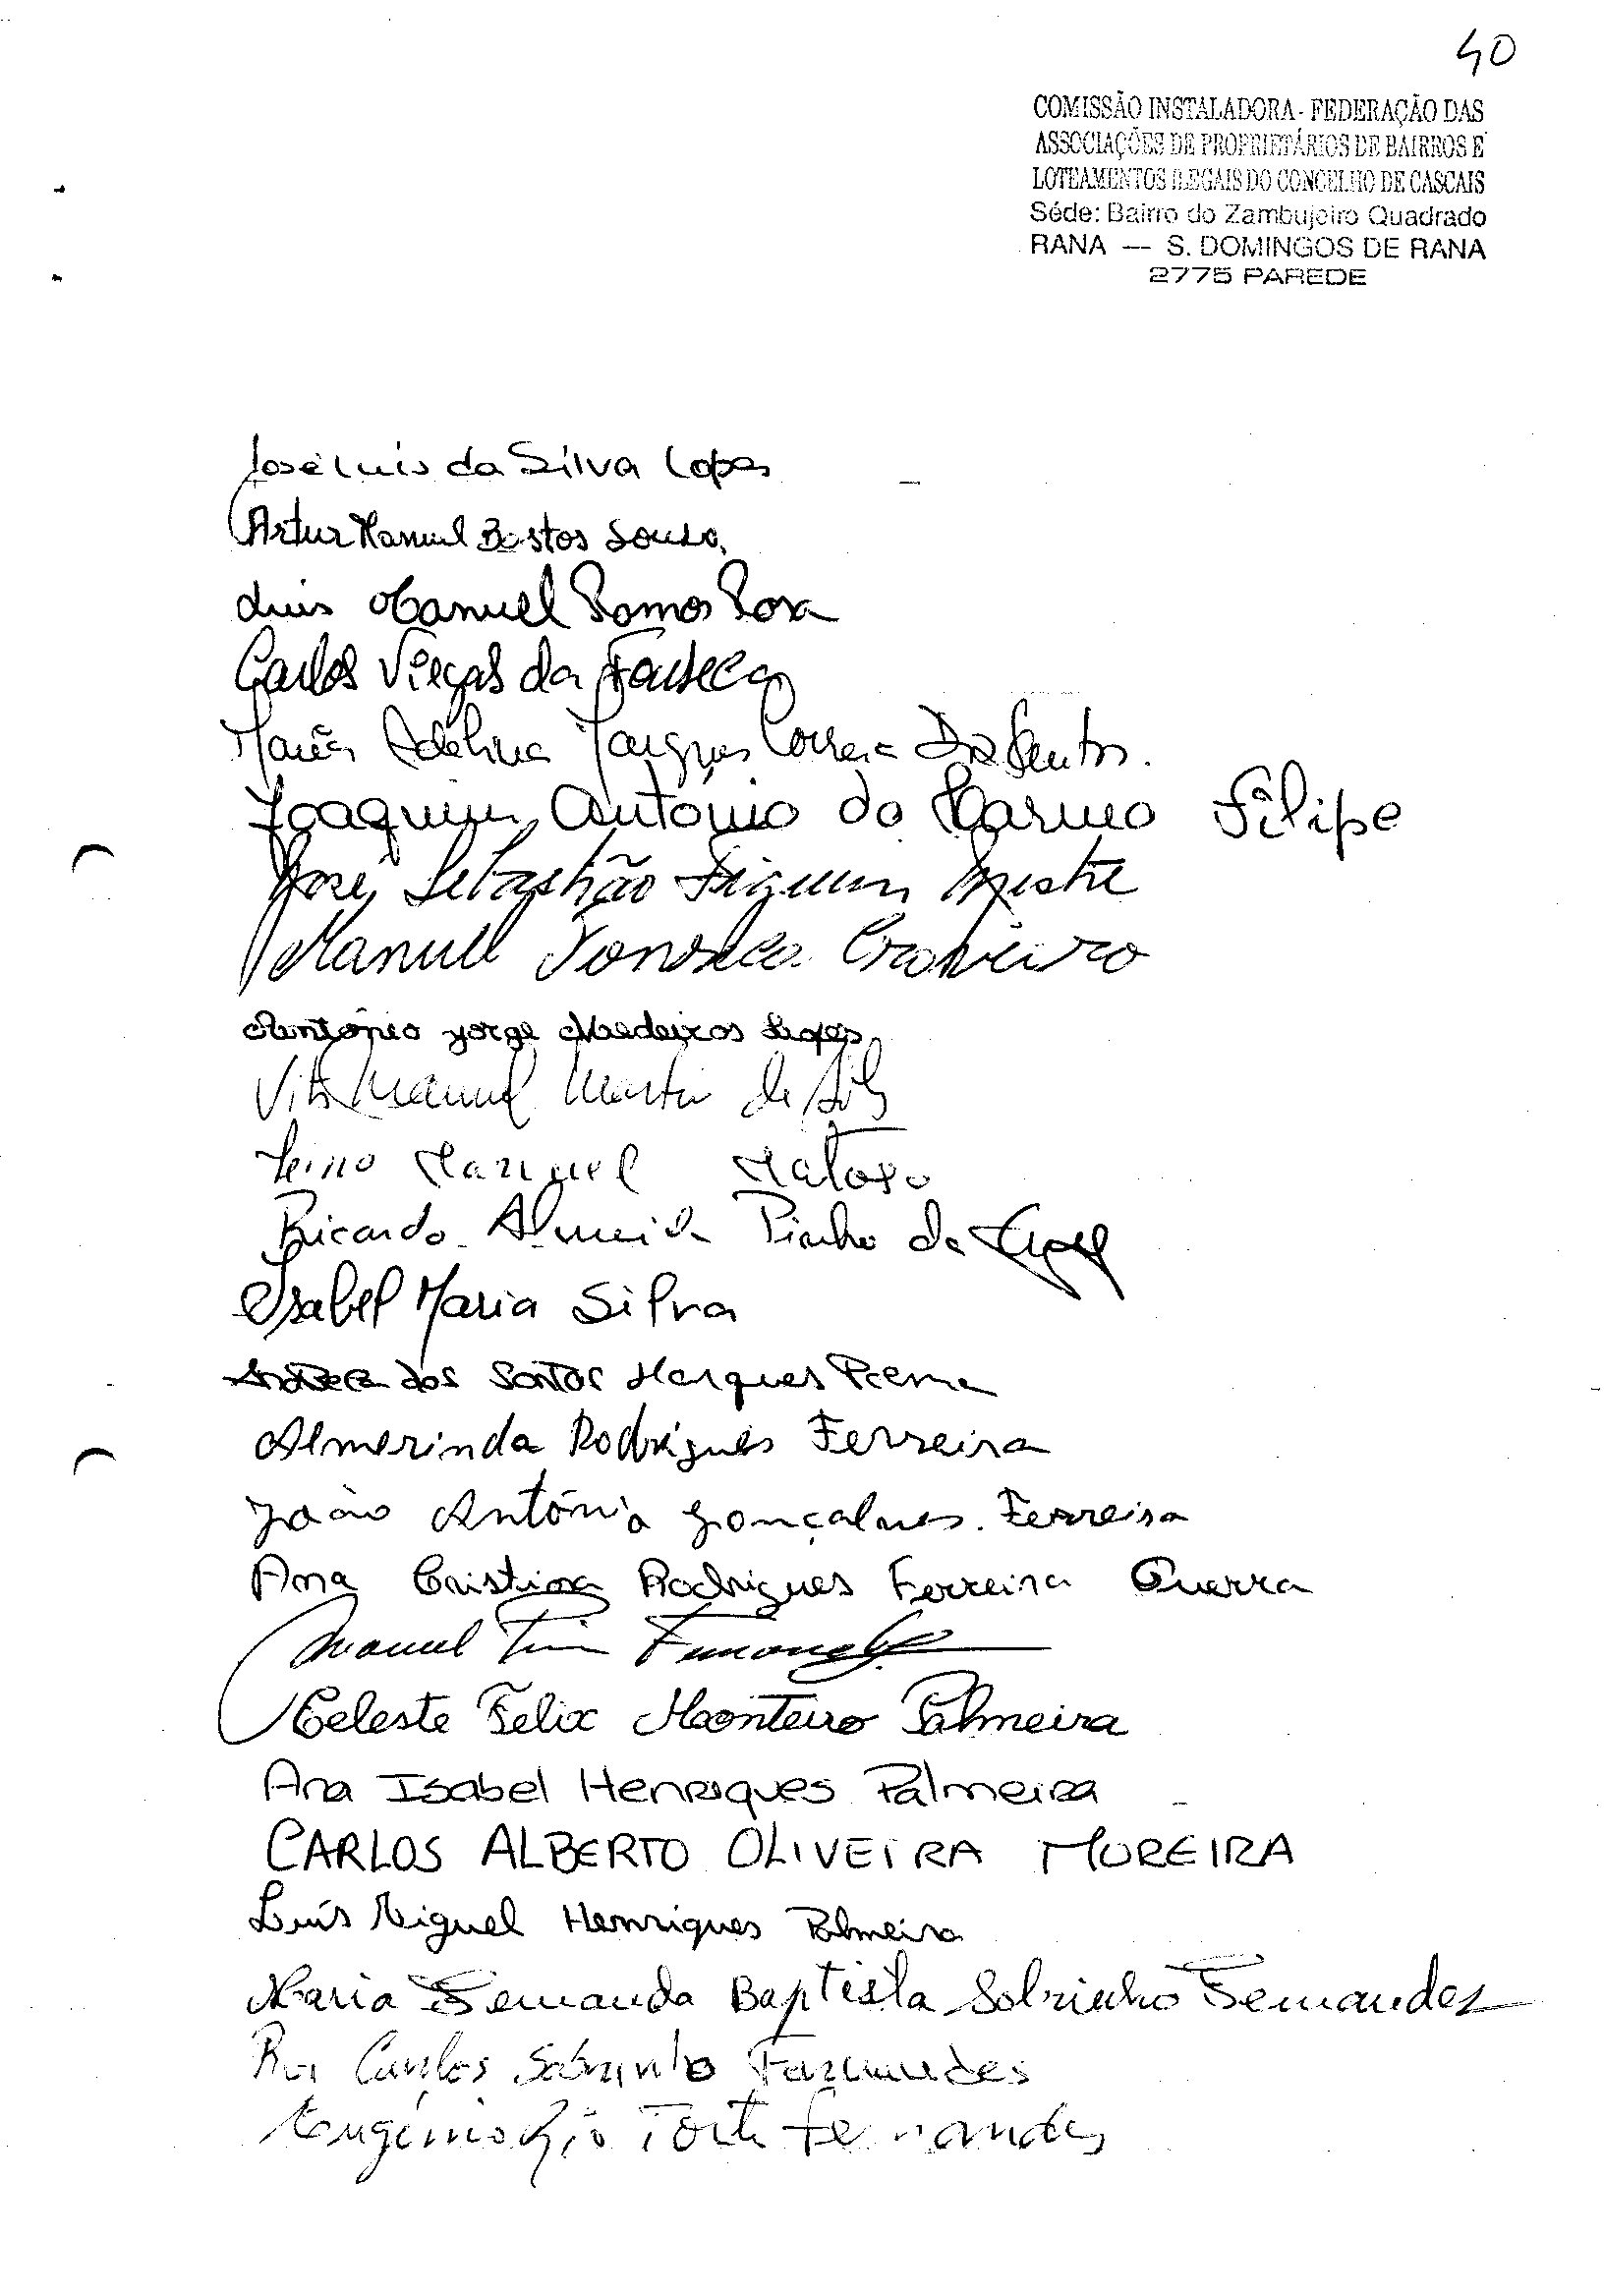 40
COMISSÃO INSTALADORA - FEDERAÇÃO DAS
ASSOCIAÇÕES DE PROPRIETÁRIOS DE BAIRROS E
LOTEAMENTOS ILEGAIS DO CONCELHO DE CASCAIS
Séde: Bairro do Zambujeiro Quadrado
RANA — S. DOMINGOS DE RANA
2775 PAREDE
José Luis da Silva Lopes
Artur Manuel Bastos Sousa
Luis Manuel Ramos Rosa
Carlos Viegas da Fonseca
Maria Adelina Marques Correia Dos Santos.
Joaquim António do Carmo Filipe
José Sebastião Mestre
Manuel Fonseca Craveiro
António Jorge Medeiros Lopes
Vitor Manuel Martins da Silva
Manuel Matoso
Ricardo Almeida Pinho da
Isabel Maria Silva
dos Santos Marques
Almerinda Rodrigues Ferreira
João António Gonçalves Ferreira
Ana Cristina Rodrigues Ferreira Guerra
Manuel Fernandes
Celeste Felix Monteiro Palmeira
Ana Isabel Henriques Palmeira
CARLOS ALBERTO OLIVEIRA MOREIRA
Luís Miguel Henriques Palmeira
Maria Fernanda Baptista Sobrinho Fernandes
Rui Carlos Sobrinho Fernandes
Eugénio Fernandes